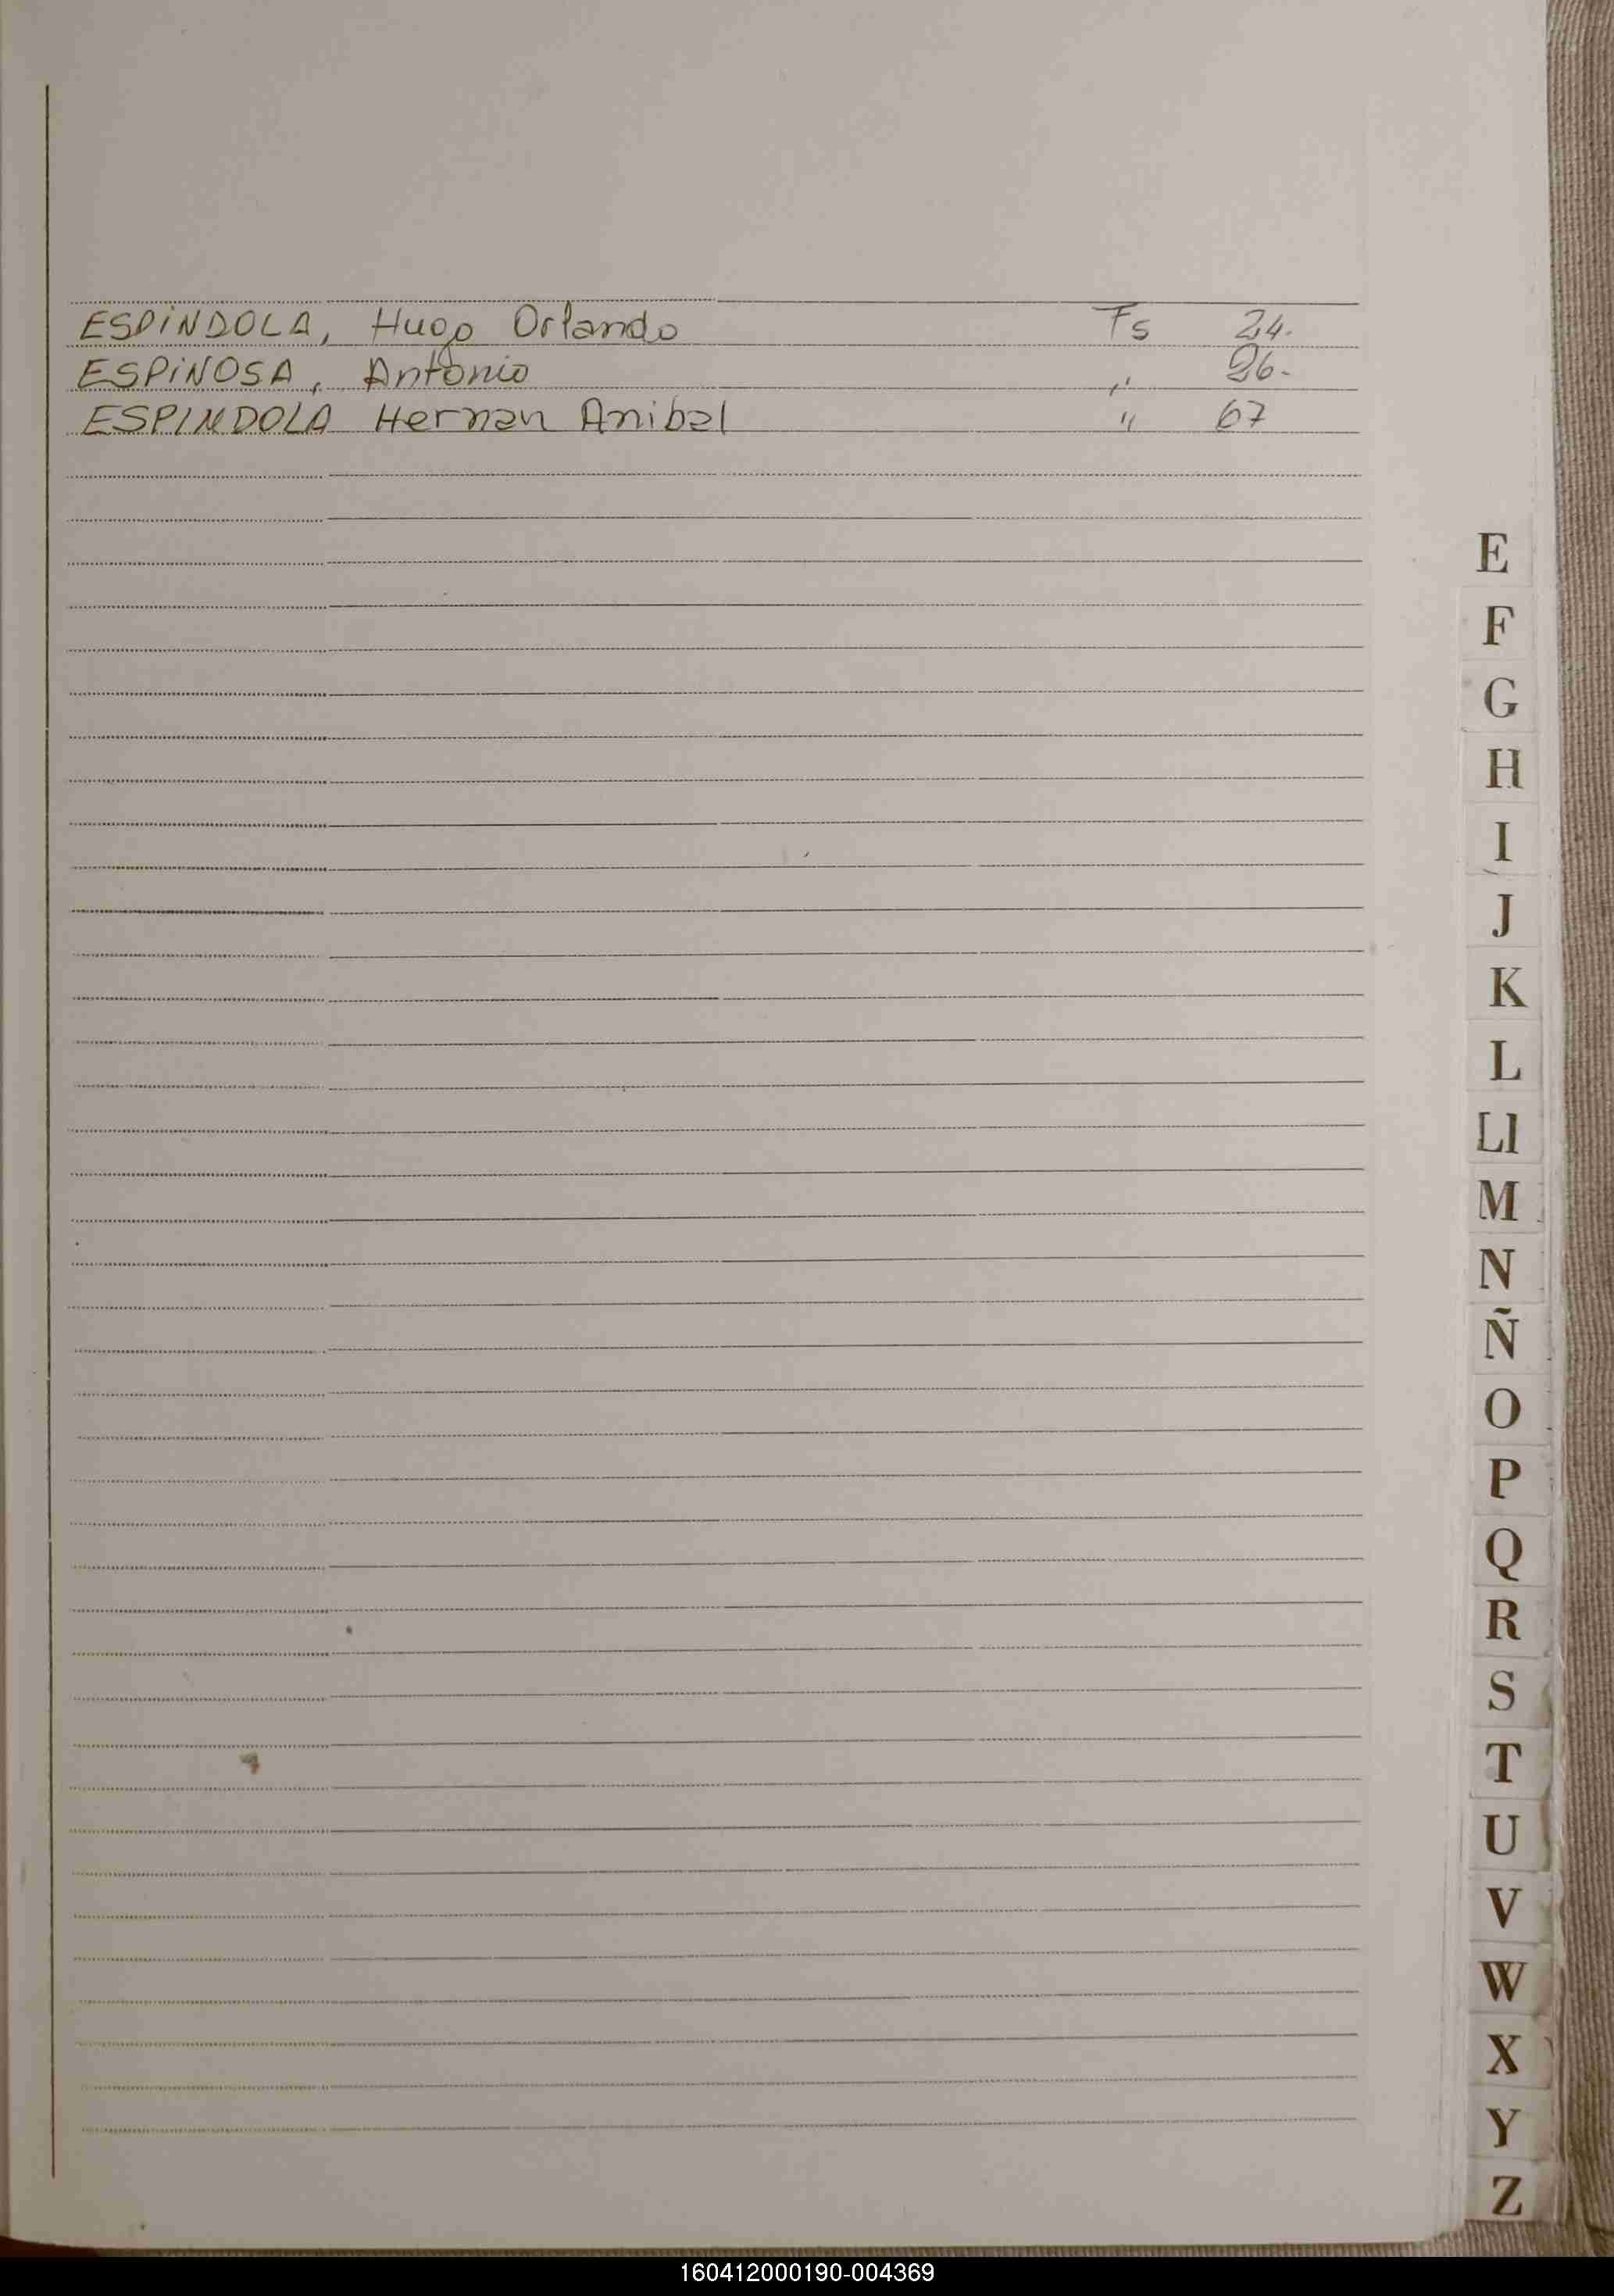 ESPiNDOLA, Hugo Orlando Fs 24.
ESPiNOSA, Antonio ,, 26.
ESPINDOLA Hernan Anibal " 67
E
F
G
H
I
J
K
L
Ll
M
N
Ñ
O
P
Q
R
S
T
U
V
W
X
Y
Z
160412000190-004369